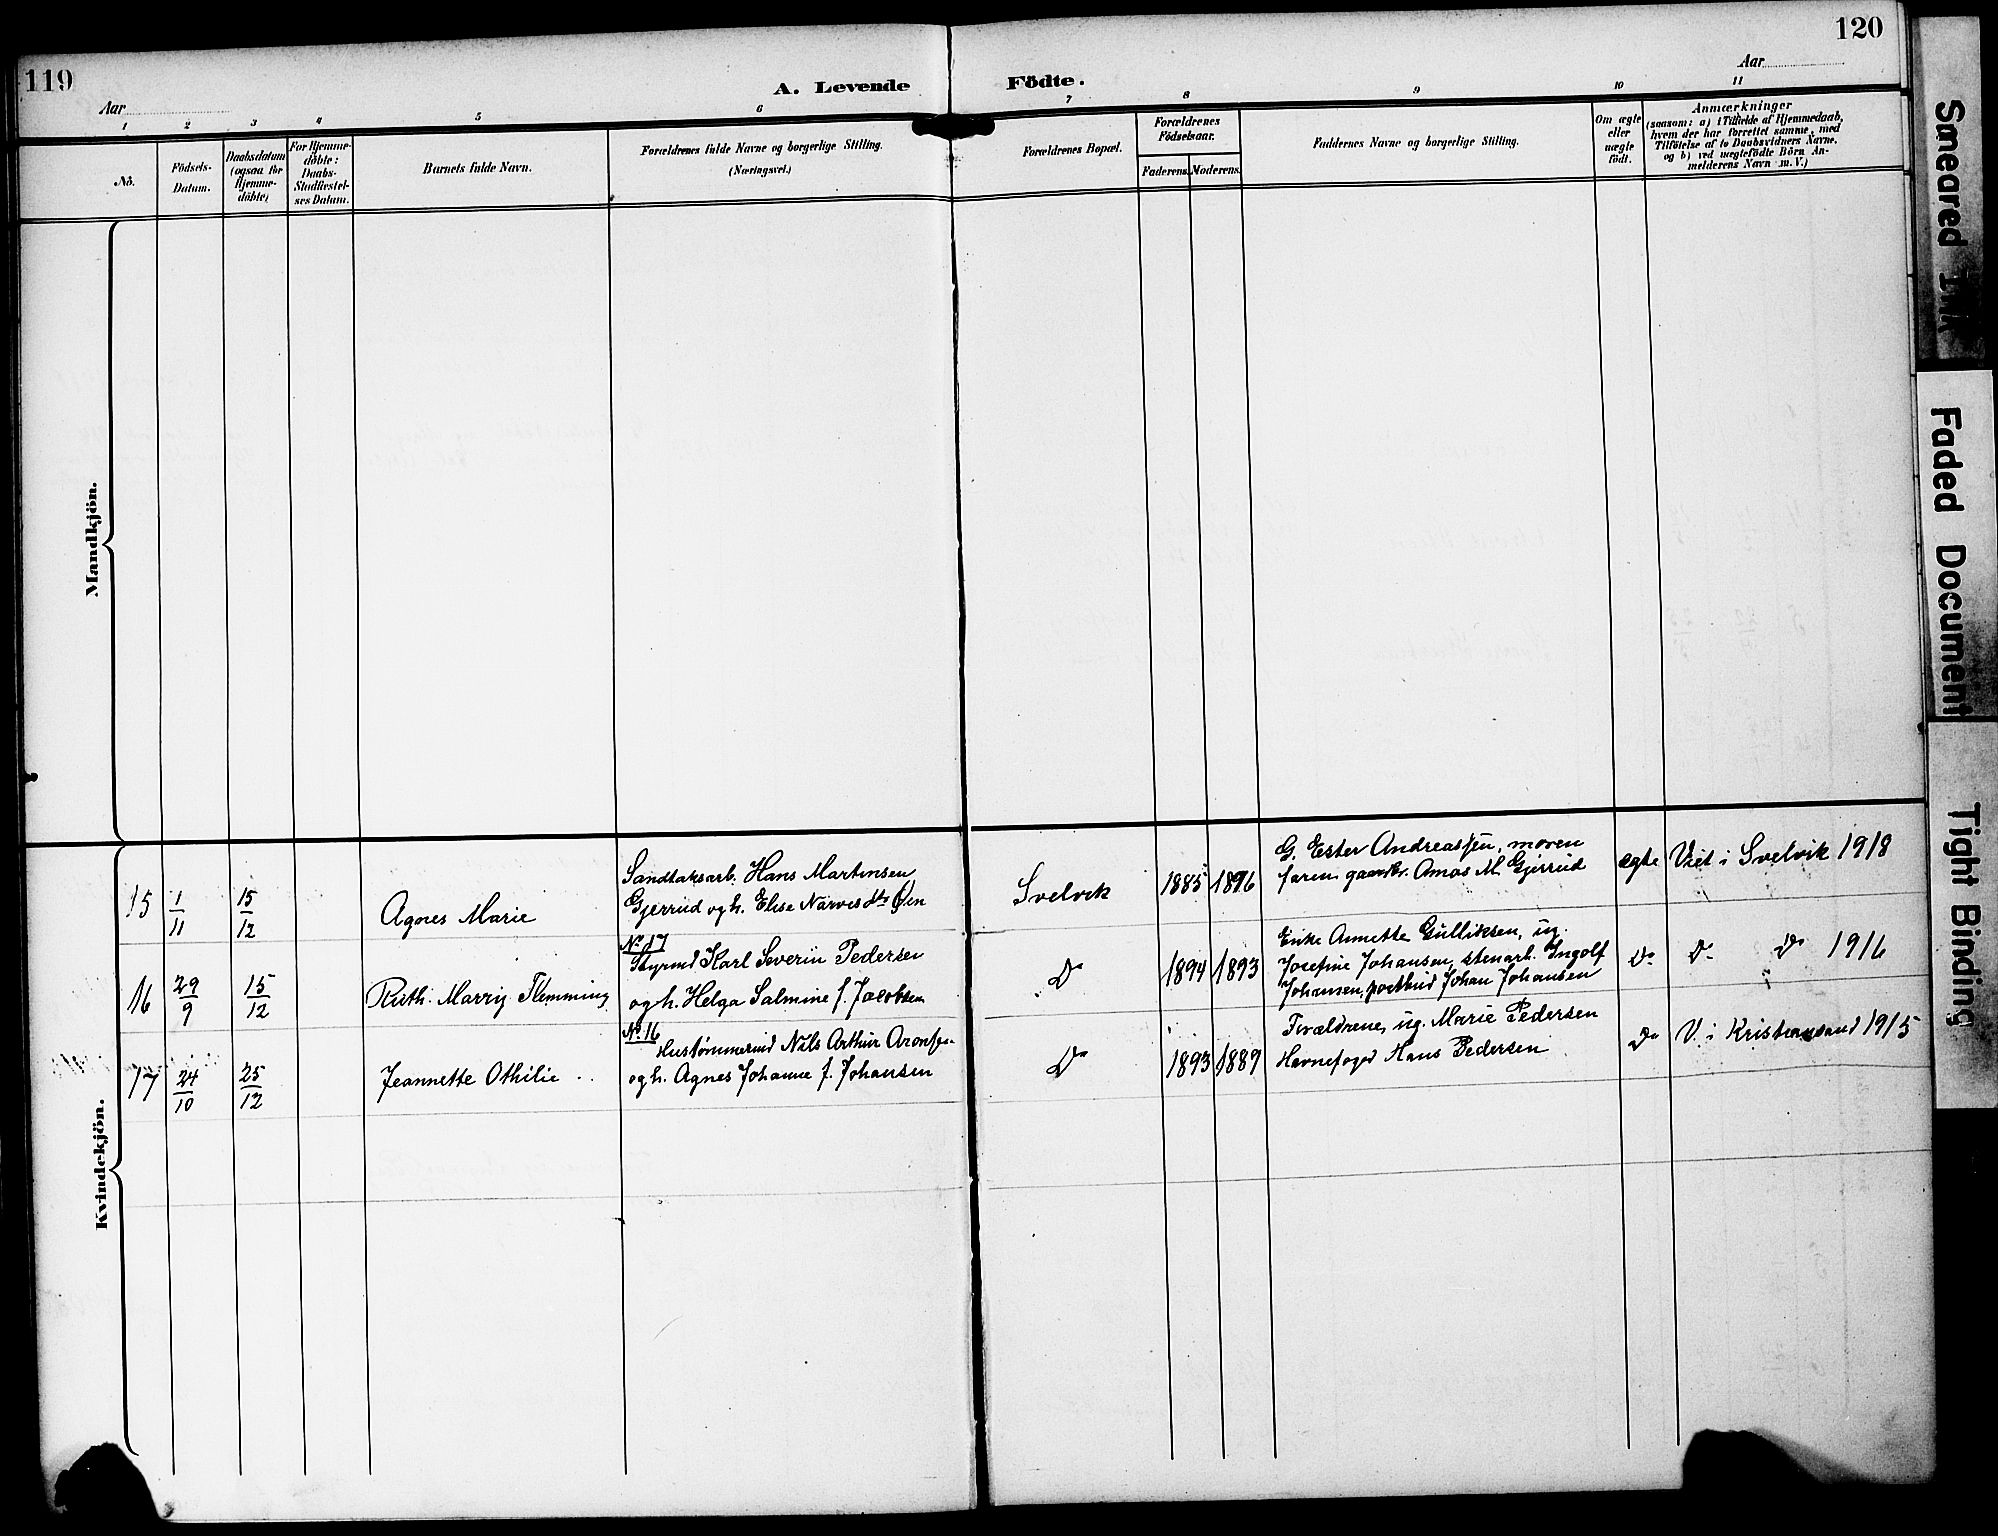 119
120
Aar
A. Levende Födte.
Aar
1 2 3 4 5 6 7 8 9 10 11
No.
Födsels-
Datum.
Daabsdatum
(ogsaa for
Hjemme-
döbte)
For Hjemme-
döbte:
Daabs-
Stadfæstel-
ses Datum.
Barnets fulde Navn.
Forældrenes fulde Navne og borgerlige Stilling.
(Næringsvei.)
Forældrenes Bopæl.
Forældrenes
Födselsaar.
Faderens.
Moderens.
Faddernes Navne og borgerlige Stilling.
Om ægte
eller
uægte
født.
Anmærkninger
(saasom: a) i Tilfælde af Hjemmedaab,
hvem der har forrettet samme, med
Tilföielse af to Daabsvidners Navne,
og b) ved uægtefödte Börn An-
melderens Navn m. V.)
Mandkjön.
Kvindekjön.
15 1/11 15/12 Agnes Marie
Sandtaksarb. Hans Martinsen
Gjerrud og h. Elise Narvesdtr Øen
Svelvik 1885 1896
G. Ester Andreassen, moren
faren gaardbr. Amos M. Gjerrud
ægte Viet i Svelvik 1918
16 29/9 15/12 Ruth Marry Flemming
No 17
Styrmd Karl Severin Pedersen
og h. Helga Salmine f. Jacobsen
Do 1894 1893
Enke Annette Gulliksen, ug.
Josefine Johansen, stenarb. Ingolf
Johansen, postbud Johan Johansen
Do Do Do 1916
17 24/10 25/12 Jeannette Othilie
No 16
Hustømmermd Nils Arthur Aronsen
og h. Agnes Johanne f. Johansen
Do 1893 1889
Forældrene, ug. Marie Pedersen
Havnefoged Hans Pedersen
Do V. i Kristiansand 1915
Smeared Ink
Faded Document
Tight Binding